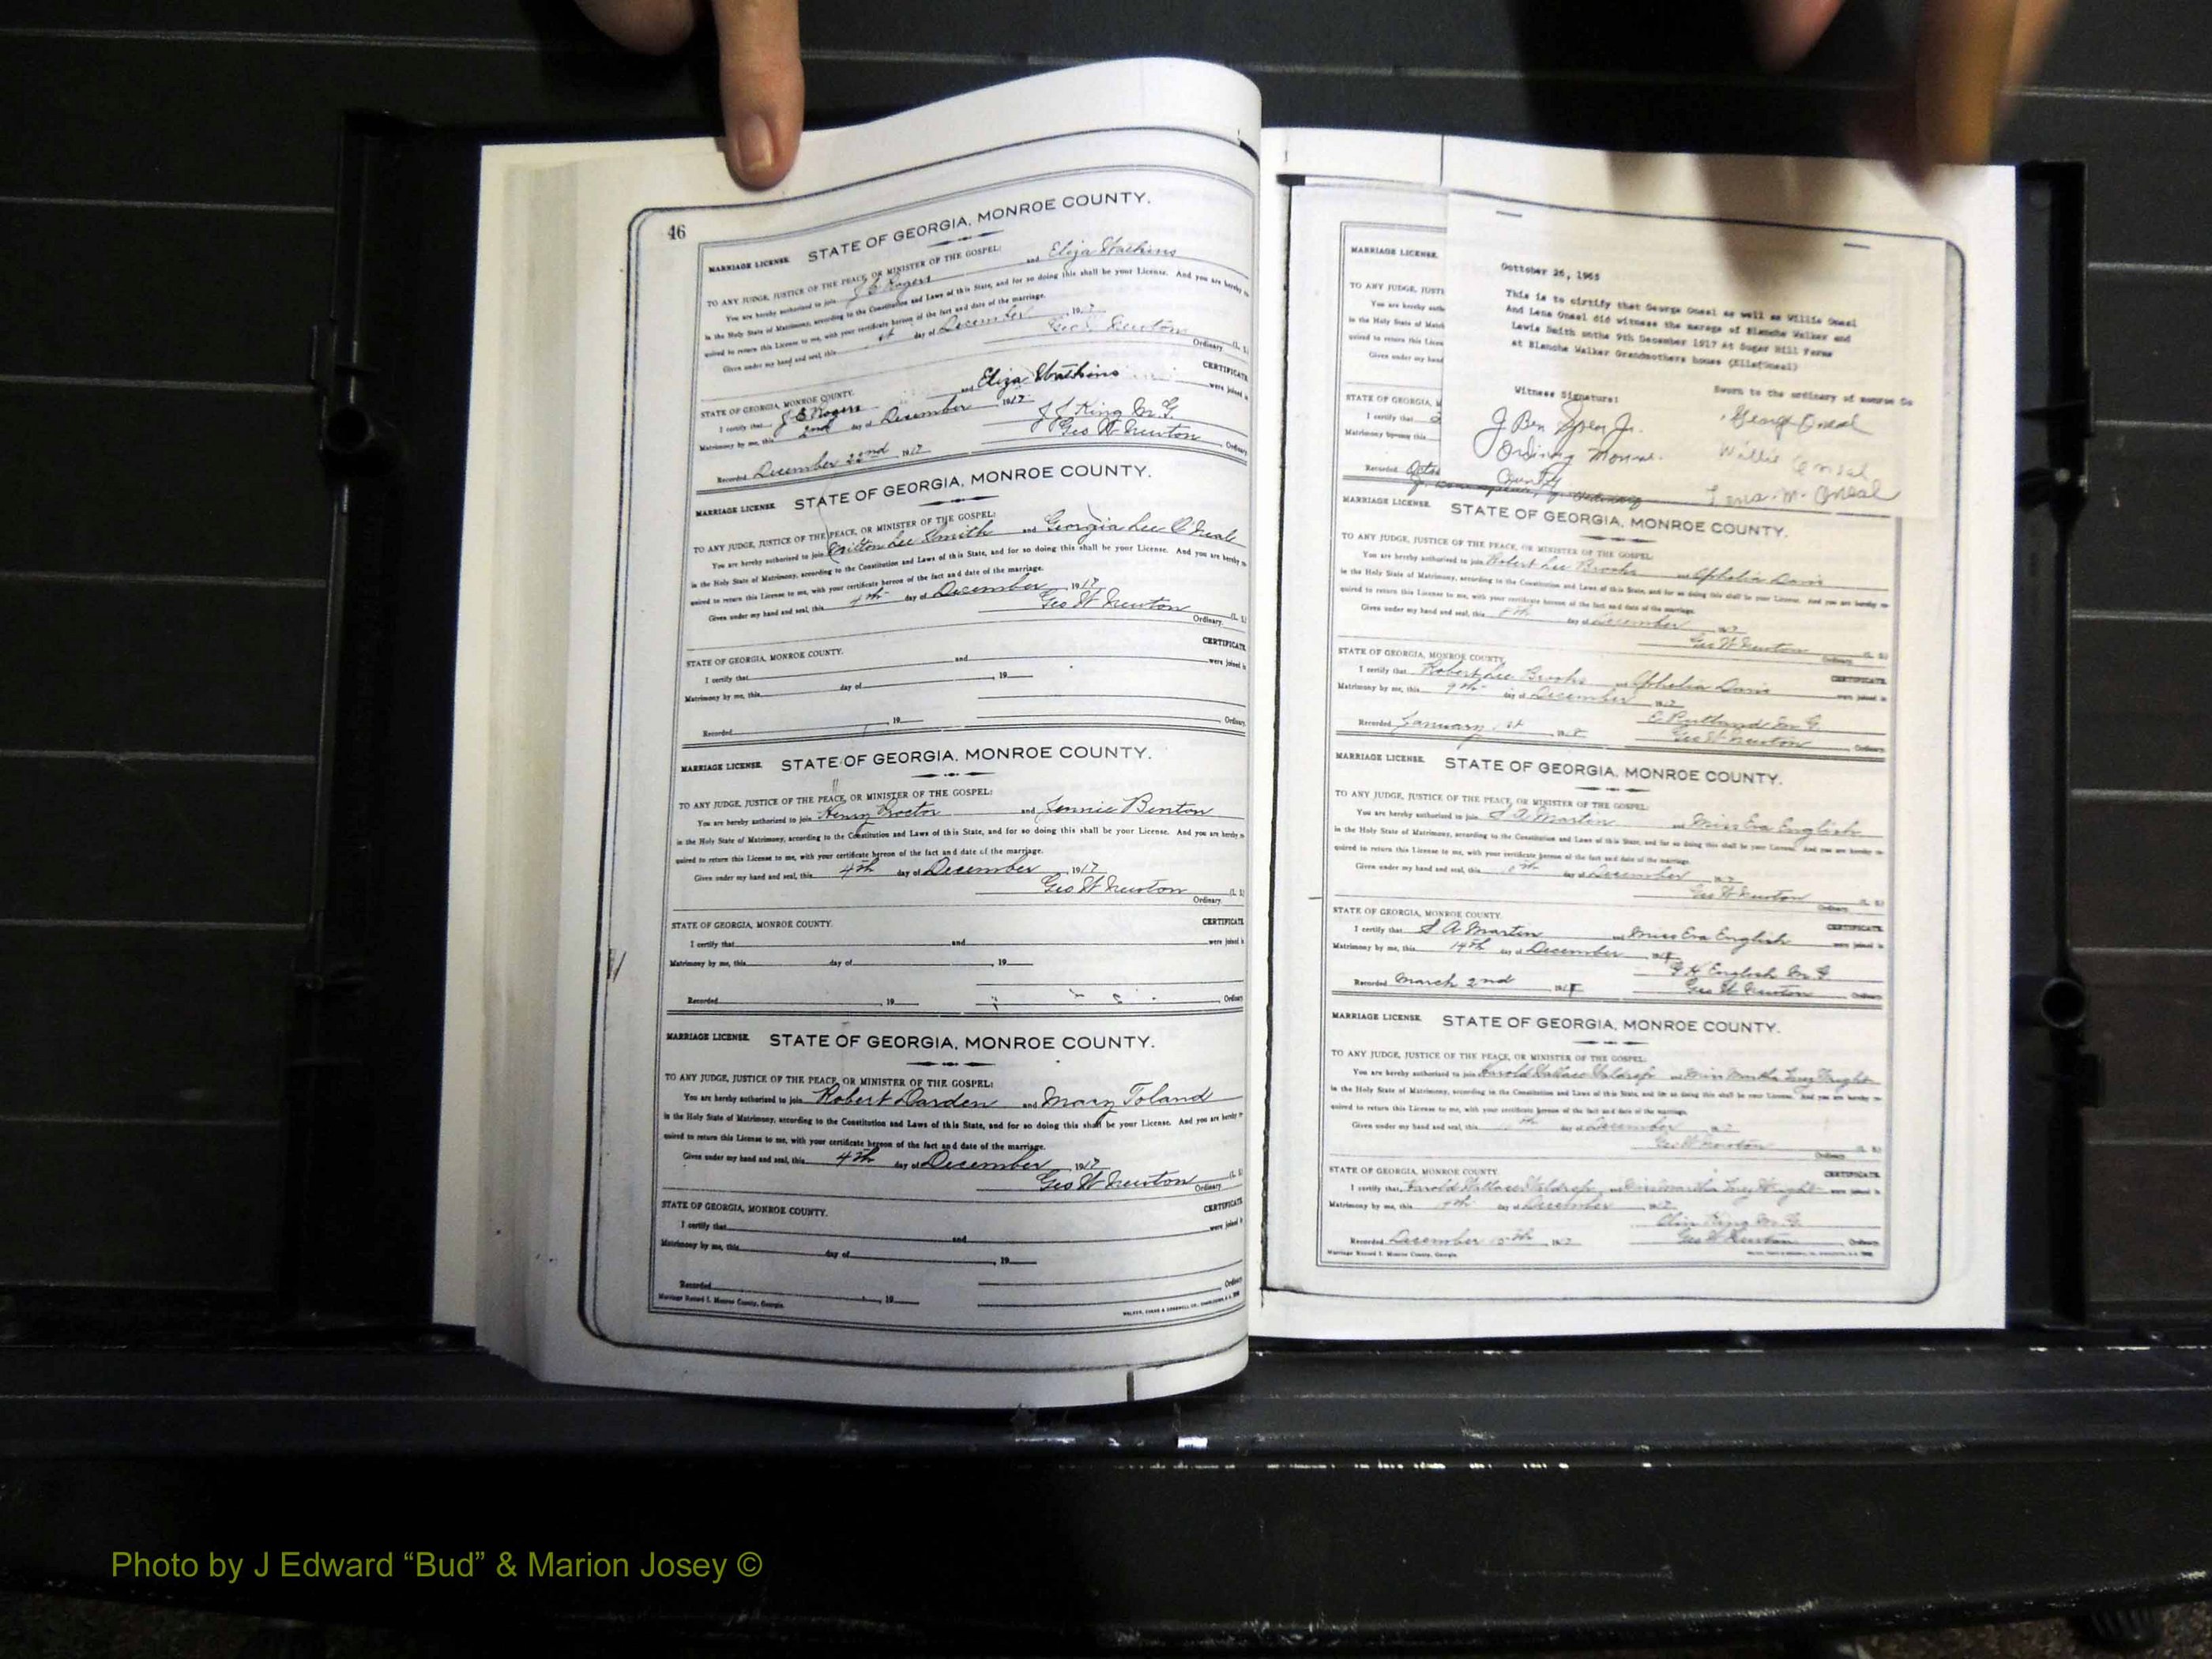 46
STATE OF GEORGIA, MONROE COUNTY.
MARRIAGE LICENSE.
TO ANY JUDGE, JUSTICE OF THE PEACE, OR MINISTER OF THE GOSPEL:
You are hereby authorized to join J E Rogers and Eliza Watkins
in the Holy State of Matrimony, according to the Constitution and Laws of this State, and for so doing this shall be your License. And you are hereby re-
quired to return this License to me, with your certificate hereon of the fact and date of the marriage.
Given under my hand and seal, this 1st day of December 1917
Geo W Newton (L. S.)
Ordinary.
STATE OF GEORGIA, MONROE COUNTY. CERTIFICATE
I certify that J E Rogers and Eliza Watkins were joined in
Matrimony by me, this 2nd day of December 1917
J J King M.G.
Recorded December 22nd 1917 Geo W Newton, Ordinary
MARRIAGE LICENSE. STATE OF GEORGIA, MONROE COUNTY.
TO ANY JUDGE, JUSTICE OF THE PEACE, OR MINISTER OF THE GOSPEL:
You are hereby authorized to join Milton Lee Smith and Georgia Lee O'Neale
in the Holy State of Matrimony, according to the Constitution and Laws of this State, and for so doing this shall be your License. And you are hereby re-
quired to return this License to me, with your certificate hereon of the fact and date of the marriage.
Given under my hand and seal, this 4th day of December 1917
Geo W Newton (L. S.)
Ordinary.
STATE OF GEORGIA, MONROE COUNTY. CERTIFICATE
I certify that and were joined in
Matrimony by me, this day of , 19
Recorded , 19 , Ordinary
MARRIAGE LICENSE. STATE OF GEORGIA, MONROE COUNTY.
TO ANY JUDGE, JUSTICE OF THE PEACE, OR MINISTER OF THE GOSPEL:
You are hereby authorized to join Henry Proctor and Jennie Benton
in the Holy State of Matrimony, according to the Constitution and Laws of this State, and for so doing this shall be your License. And you are hereby re-
quired to return this License to me, with your certificate hereon of the fact and date of the marriage.
Given under my hand and seal, this 4th day of December , 1917
Geo W Newton (L. S.)
Ordinary.
STATE OF GEORGIA, MONROE COUNTY. CERTIFICATE
I certify that and were joined in
Matrimony by me, this day of , 19
Recorded , 19 , Ordinary
MARRIAGE LICENSE. STATE OF GEORGIA, MONROE COUNTY.
TO ANY JUDGE, JUSTICE OF THE PEACE, OR MINISTER OF THE GOSPEL:
You are hereby authorized to join Robert Darden and Mary Toland
in the Holy State of Matrimony, according to the Constitution and Laws of this State, and for so doing this shall be your License. And you are hereby re-
quired to return this License to me, with your certificate hereon of the fact and date of the marriage.
Given under my hand and seal, this 4th day of December , 1917
Geo W Newton (L. S.)
Ordinary.
STATE OF GEORGIA, MONROE COUNTY. CERTIFICATE
I certify that and were joined in
Matrimony by me, this day of , 19
Recorded , 19 , Ordinary
Marriage Record I. Monroe County, Georgia.
MARRIAGE LICENSE.
TO ANY JUDGE, JUSTI
You are hereby auth
in the Holy State of Matri
quired to return this Licen
Given under my hand
STATE OF GEORGIA, M
I certify that
Matrimony by me, this
Recorded
Oottober 26, 1965
This is to cirtify that George Oneal as well as Willie Oneal
And Lena Oneal did witness the marage of Blanche Walker and
Lewis Smith onthe 9th December 1917 At Sugar Hill Farms
at Blanche Walker Grandmothers house (EllafOneal)
Witness Signature: Sworn to the ordinary of monroe Co
J Ben Spear Jr. George Oneal
Ordinary Monroe Willie Oneal
County Lena M. Oneal
MARRIAGE LICENSE. STATE OF GEORGIA, MONROE COUNTY.
TO ANY JUDGE, JUSTICE OF THE PEACE, OR MINISTER OF THE GOSPEL:
You are hereby authorized to join Robert Lee Brooks and Ophelia Davis
in the Holy State of Matrimony, according to the Constitution and Laws of this State, and for so doing this shall be your License. And you are hereby re-
quired to return this License to me, with your certificate hereon of the fact and date of the marriage.
Given under my hand and seal, this 8th day of December 1917
Geo W Newton (L. S.)
Ordinary.
STATE OF GEORGIA, MONROE COUNTY. CERTIFICATE
I certify that Robert Lee Brooks and Ophelia Davis were joined in
Matrimony by me, this 9th day of December , 1917
M.G.
Recorded January 1st , 1918 Geo W Newton, Ordinary
MARRIAGE LICENSE. STATE OF GEORGIA, MONROE COUNTY.
TO ANY JUDGE, JUSTICE OF THE PEACE, OR MINISTER OF THE GOSPEL:
You are hereby authorized to join S A Martin and Miss Eva English
in the Holy State of Matrimony, according to the Constitution and Laws of this State, and for so doing this shall be your License. And you are hereby re-
quired to return this License to me, with your certificate hereon of the fact and date of the marriage.
Given under my hand and seal, this day of December , 1917
Geo W Newton (L. S.)
Ordinary.
STATE OF GEORGIA, MONROE COUNTY. CERTIFICATE
I certify that S A Martin and Miss Eva English were joined in
Matrimony by me, this 14th day of December
English M G
Recorded March 2nd Geo W Newton, Ordinary
MARRIAGE LICENSE. STATE OF GEORGIA, MONROE COUNTY.
TO ANY JUDGE, JUSTICE OF THE PEACE, OR MINISTER OF THE GOSPEL:
You are hereby authorized to join Harold Wallace Waldrep and Miss Martha Wright
in the Holy State of Matrimony, according to the Constitution and Laws of this State, and for so doing this shall be your License. And you are hereby re-
quired to return this License to me, with your certificate hereon of the fact and date of the marriage.
Given under my hand and seal, this day of December 1917
Geo W Newton (L. S.)
Ordinary.
STATE OF GEORGIA, MONROE COUNTY. CERTIFICATE
I certify that Harold Wallace Waldrep and Miss Martha Wright were joined in
Matrimony by me, this day of December 1917
Olin King M.G.
Recorded December 15th , 1917 Geo W Newton, Ordinary
Marriage Record I. Monroe County, Georgia.
Photo by J Edward “Bud” & Marion Josey ©